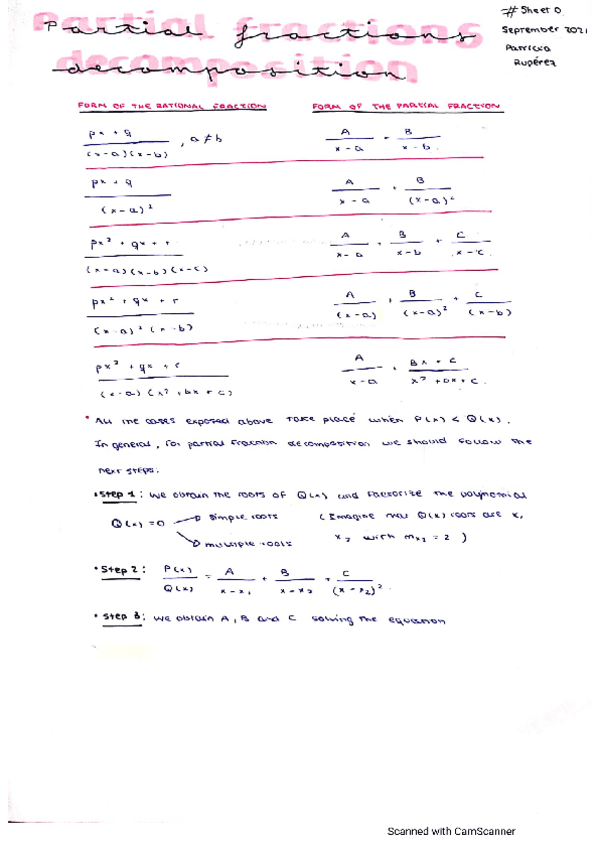 # Sheet 0
September 2021
Patricia
Rupérez
Partial fractions
decomposition
FORM OF THE RATIONAL FRACTION    FORM OF THE PARTIAL FRACTION
px + q / (x-a)(x-b) , a ≠ b    A / x-a + B / x-b
px + q / (x-a)²    A / x-a + B / (x-a)²
px² + qx + r / (x-a)(x-b)(x-c)    A / x-a + B / x-b + C / x-c
px² + qx + r / (x-a)²(x-b)    A / (x-a) + B / (x-a)² + C / (x-b)
px² + qx + r / (x-a)(x² + bx + c)    A / x-a + Bx + C / x² + bx + c
* All the cases exposed above take place when P(x) < Q(x).
In general, for partial fraction decomposition we should follow the
next steps:
• Step 1: We obtain the roots of Q(x) and factorize the polynomial
Q(x) = 0 → simple roots    (Imagine that Q(x) roots are x₁
→ multiple roots    x₂ with mx₂ = 2 )
• Step 2: P(x) / Q(x) = A / x-x₁ + B / x-x₂ + C / (x-x₂)².
• Step 3: We obtain A, B and C solving the equation
Scanned with CamScanner